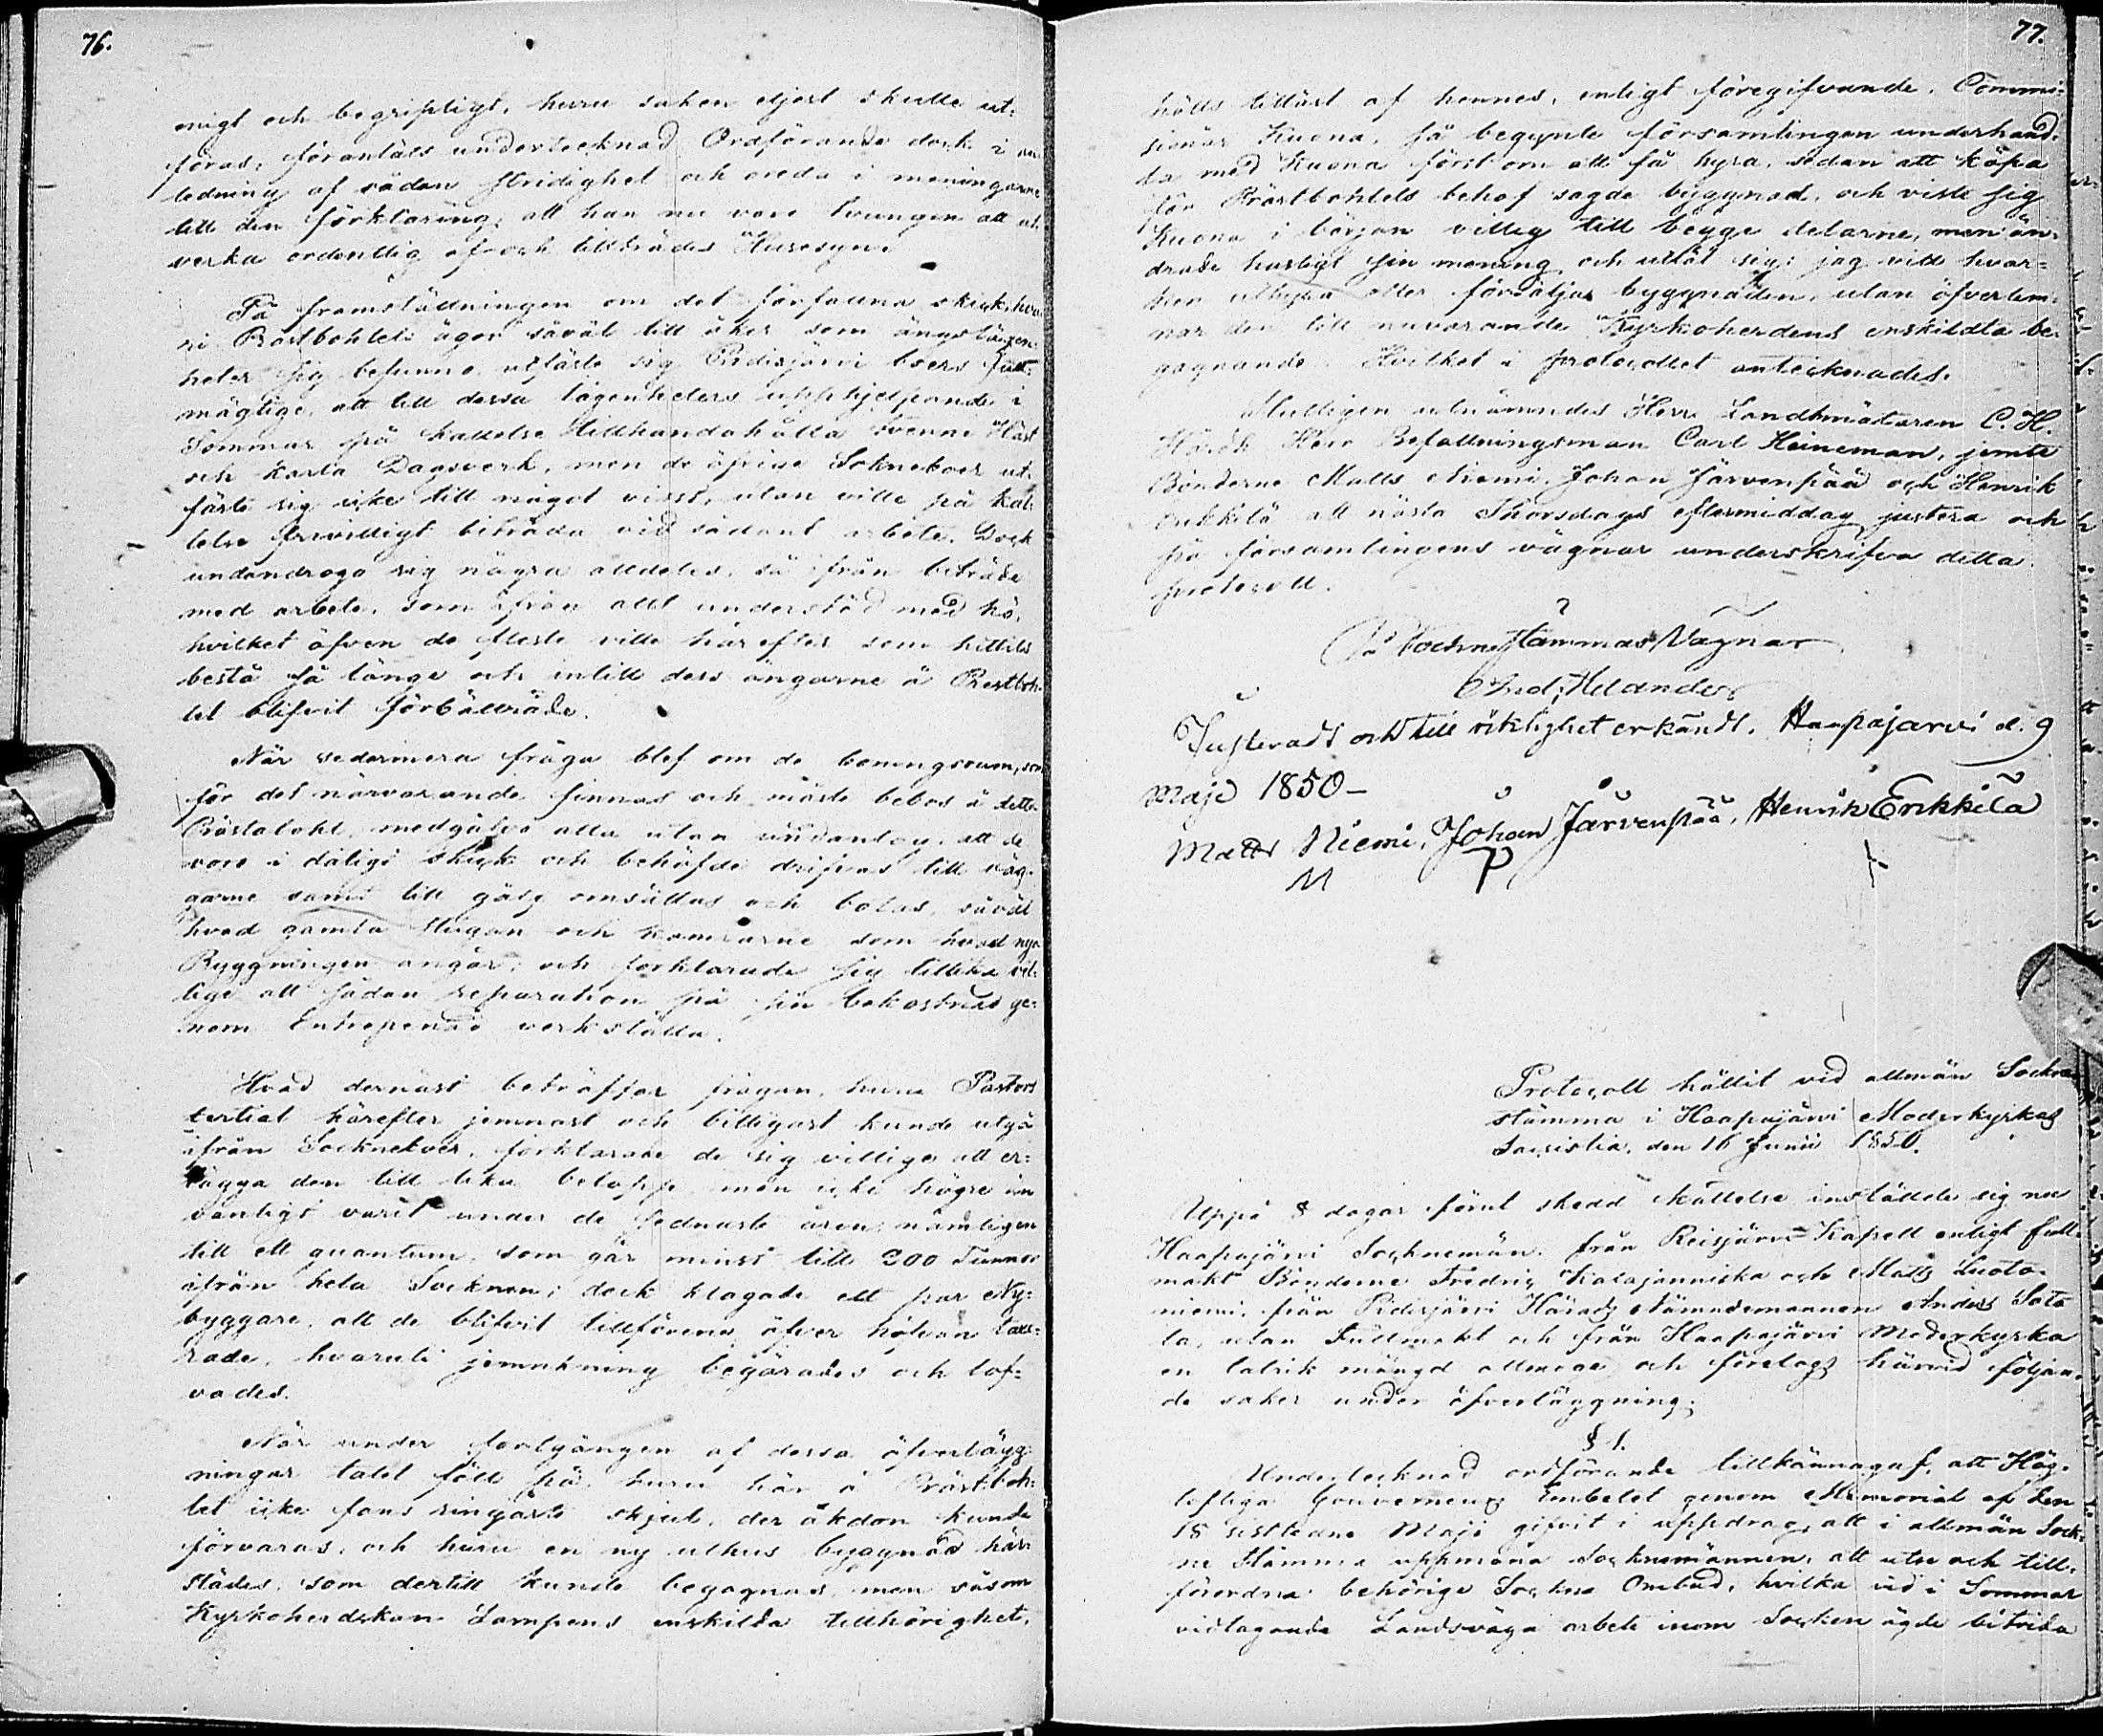 76.
nigt och begripligt, huru saken eljest skulle ut-
föras; föranläts undertecknad Ordförande dock i an-
ledning af sådan stridighet och oreda i meningarne
till den förklaring, att han nu vore tvungen att ut-
verka ordentlig af och tillträdes Husesyn.
På framställningen om det förfallna skick, hvar-
i Prästbohlets ägor såväl till åker som ängslägen-
heter sig befunno utfäste sig Pidisjärvi boers full-
mägtige, att till dessa lägenheters upphjelpande i
Sommar på kallelse tillhandahålla tvenne Häst
och Karla Dagsverk, men de öfrige Sokneboer ut-
fäste sig icke till något visst, utan ville på kal-
lelse frivilligt biträda vid sådant arbete. Dock
undandrogo sig några alldeles, så från biträde
med arbete, som ifrån allt understöd med hö,
hvilket öfven de fleste ville härefter som hittils
bestå så länge och intill dess ängarne å Prestboh-
let blifvit förbättrade.
När sedermera fråga blef om de boningsrum, som
för det närvarande finnas och måste bebos å detta
Prästabohl, medgåfvo alla utan undantag, att de
vore i dåligt skick och behöfde drifvas till väg-
garne samt till golf omsättas och botas, såväl
hvad gamla stugan och kamrarne som hvad nya
Byggningen angår; och förklarade sig tillika vil-
lige att sådan reparation på sin bekostnad ge-
nom Entreprenad verkställa.
Hvad dernäst beträffar frågan, huru Pastors
tertial härefter jemnast och billigast kunde utgå
ifrån Socknekoer, förklarade de sig villige att er-
lägga den till lika belopp men icke högre än
vanligt varit under de sednaste åren, nämligen
till ett quantum, som går minst till 200 Tunnor
ifrån hela Socknen; dock klagade ett par Ny-
byggare, att de blifvit tillförene öfver höfvan taxe-
rade, hvaruti jemnkning begärades och lof-
vades.
När under fortgången af dessa öfverlägg-
ningar talet föll på huru här å Prästboh-
let icke fans ringaste skjul, der åkdon kunde
förvaras, och huru en ny uthus byggnad här-
städes, som dertill kunde begagnas, men såsom
Kyrkoherdskan Lampens enskilda tillhörighet,
77.
hölls tillåst af hennes, enligt föregifvande, Commi-
sionär Kuona, så begynte församlingen underhand-
la med Kuona först om att få hyra, sedan att köpa
för Prästbohlets behof sagde byggnad, och viste sig
Kuona i början villig till begge delarne, men än-
drade hastigt sin mening och utlät sig: jag vill hvar-
ken uthyra eller försälja byggnaden, utan öfverlem-
nar den till nuvarande Kyrkoherdens enskildta be-
gagnande. Hvilket i protocollet antecknades.
Slutligen utnämndes Herr Landtmätaren C. H.
Herr Befallningsman Carl Heineman, jemte
Bönderne Matts Niemi, Johan Järvenpää och Henrik
Erikkilä att nästa Thorsdags eftermiddag justera och
på församlingens vägnar underskrifva detta
protocoll.
På Sochnestämmas Vägnar
And. Helander
Justerads och till riktighet erkändt. Haapajarvi d. 9
Maji 1850 –
Matts Niemi, Johan Järvenpää, Henrik Erikkila
M P
Protocoll hållit vid allmän Sockne
stämma i Haapajärvi Moderkyrkas
Sacristia, den 16 Junii 1850.
Uppå 8 dagar förut skedd kallelse inställde sig nu
Haapajärvi Socknemän: från Reisjärvi Kapell enligt full-
makt Bönderne Fredric Kalajanniska och Matts Luoto-
niemi, från Pidisjärvi Härads Nämndemannen Anders Sata
la, utan Fullmakt och från Haapajärvi Moderkyrka
en talrik mängd allmoge och företogs härvid följan-
de saker under öfverläggning:
§ 1.
Undertecknad ordförande tillkännagaf, att Hög-
lofliga Gouverneurs Embetet genom Memorial af den
18 sistledne Maji gifvit i uppdrag, att i allmän Sock-
ne Stämma uppmana Socknemännen, att utse och till-
förordna behörige Sockne Ombud, hvilka vid i Sommar
vidtagande Landsväga arbete inom Socken ägde biträda